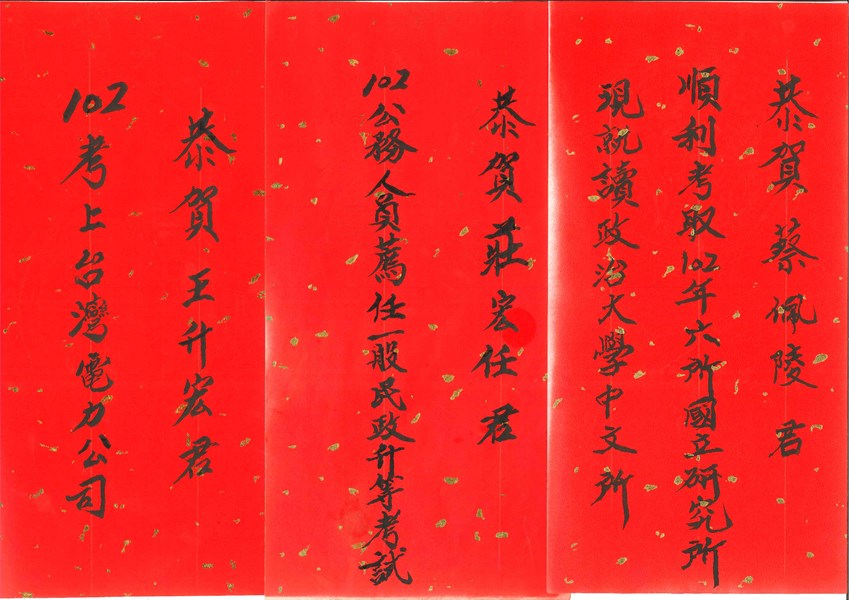 恭賀蔡佩陵君
順利考取102年六所國立研究所
現就讀政治大學中文所
恭賀莊宏任君
102公務人員薦任一般民政升等考試
恭賀王升宏君
102考上台灣電力公司